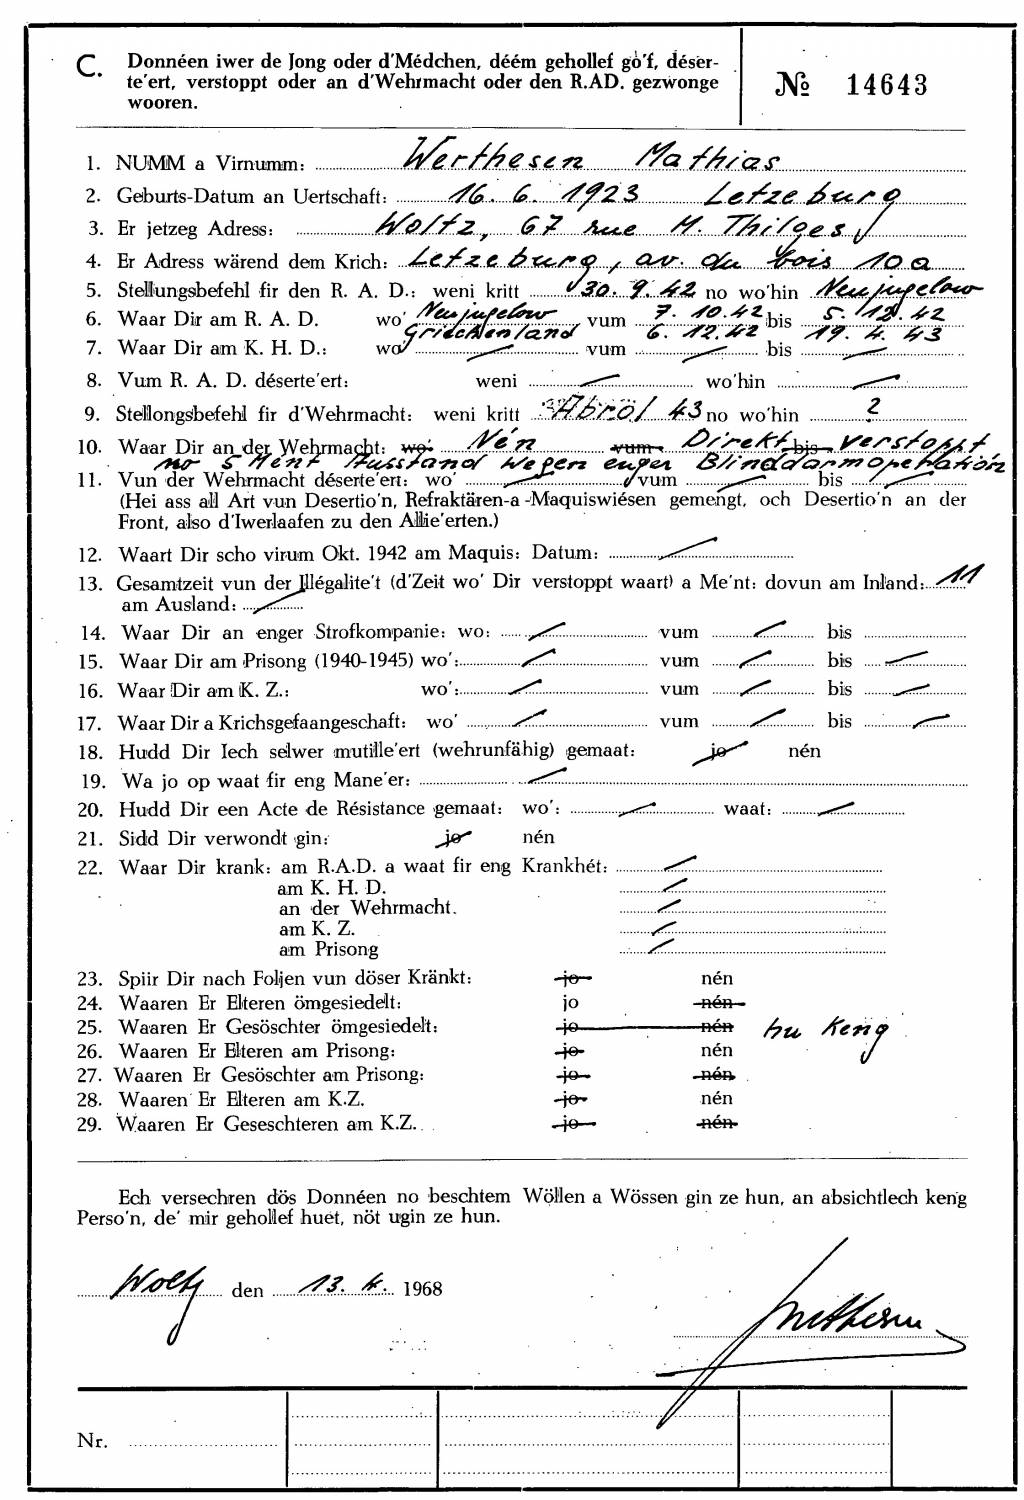 C. Donnéen iwer de Jong oder d'Médchen, déém gehollef go'f, déser-
te'ert, verstoppt oder an d'Wehrmacht oder den R.AD. gezwonge
wooren.
№ 14643
1. NUMM a Virnumm: Werthesen Mathias
2. Geburts-Datum an Uertschaft: 16. 6. 1923 Letzeburg
3. Er jetzeg Adress: Woltz, 67 rue M. Thilges
4. Er Adress wärend dem Krich: Letzeburg, av. du bois 10a
5. Stellungsbefehl fir den R. A. D.: weni kritt 30. 9. 42 no wo'hin Neujugelow
6. Waar Dir am R. A. D. wo' Neujugelow vum 7. 10. 42 bis 5. 12. 42
Griechenland 6. 12. 42 19. 4. 43
7. Waar Dir am K. H. D.: wo' vum bis
8. Vum R. A. D. déserte'ert: weni wo'hin
9. Stellongsbefehl fir d'Wehrmacht: weni kritt Abröl 43 no wo'hin ?
10. Waar Dir an der Wehrmacht: wo' Nén vum Direkt bis verstoppt
no 5 Ment Ausstand wegen enger Blinddarmoperatión
11. Vun der Wehrmacht déserte'ert: wo' vum bis
(Hei ass all Art vun Desertio'n, Refraktären-a -Maquiswiésen gemengt, och Desertio'n an der
Front, also d'Iwerlaafen zu den Allie'erten.)
12. Waart Dir scho virum Okt. 1942 am Maquis: Datum:
13. Gesamtzeit vun der Illégalite't (d'Zeit wo' Dir verstoppt waart) a Me'nt: dovun am Inland: 11
am Ausland:
14. Waar Dir an enger Strofkompanie: wo: vum bis
15. Waar Dir am Prisong (1940-1945) wo': vum bis
16. Waar Dir am K. Z.: wo': vum bis
17. Waar Dir a Krichsgefaangeschaft: wo' vum bis
18. Hudd Dir Iech selwer mutille'ert (wehrunfähig) gemaat: jo nén
19. Wa jo op waat fir eng Mane'er:
20. Hudd Dir een Acte de Résistance gemaat: wo': waat:
21. Sidd Dir verwondt gin: jo nén
22. Waar Dir krank: am R.A.D. a waat fir eng Krankhét:
am K. H. D.
an der Wehrmacht.
am K. Z.
am Prisong
23. Spiir Dir nach Foljen vun döser Kränkt: jo nén
24. Waaren Er Elteren ömgesiedelt: jo nén
25. Waaren Er Gesöschter ömgesiedelt: jo nén hu keng
26. Waaren Er Elteren am Prisong: jo nén
27. Waaren Er Gesöschter am Prisong: jo nén
28. Waaren Er Elteren am K.Z. jo nén
29. Waaren Er Geseschteren am K.Z. jo nén
Ech versechren dös Donnéen no beschtem Wöllen a Wössen gin ze hun, an absichtlech keng
Perso'n, de' mir gehollef huet, nöt ugin ze hun.
Woltz den 13. 4. 1968
Nr.